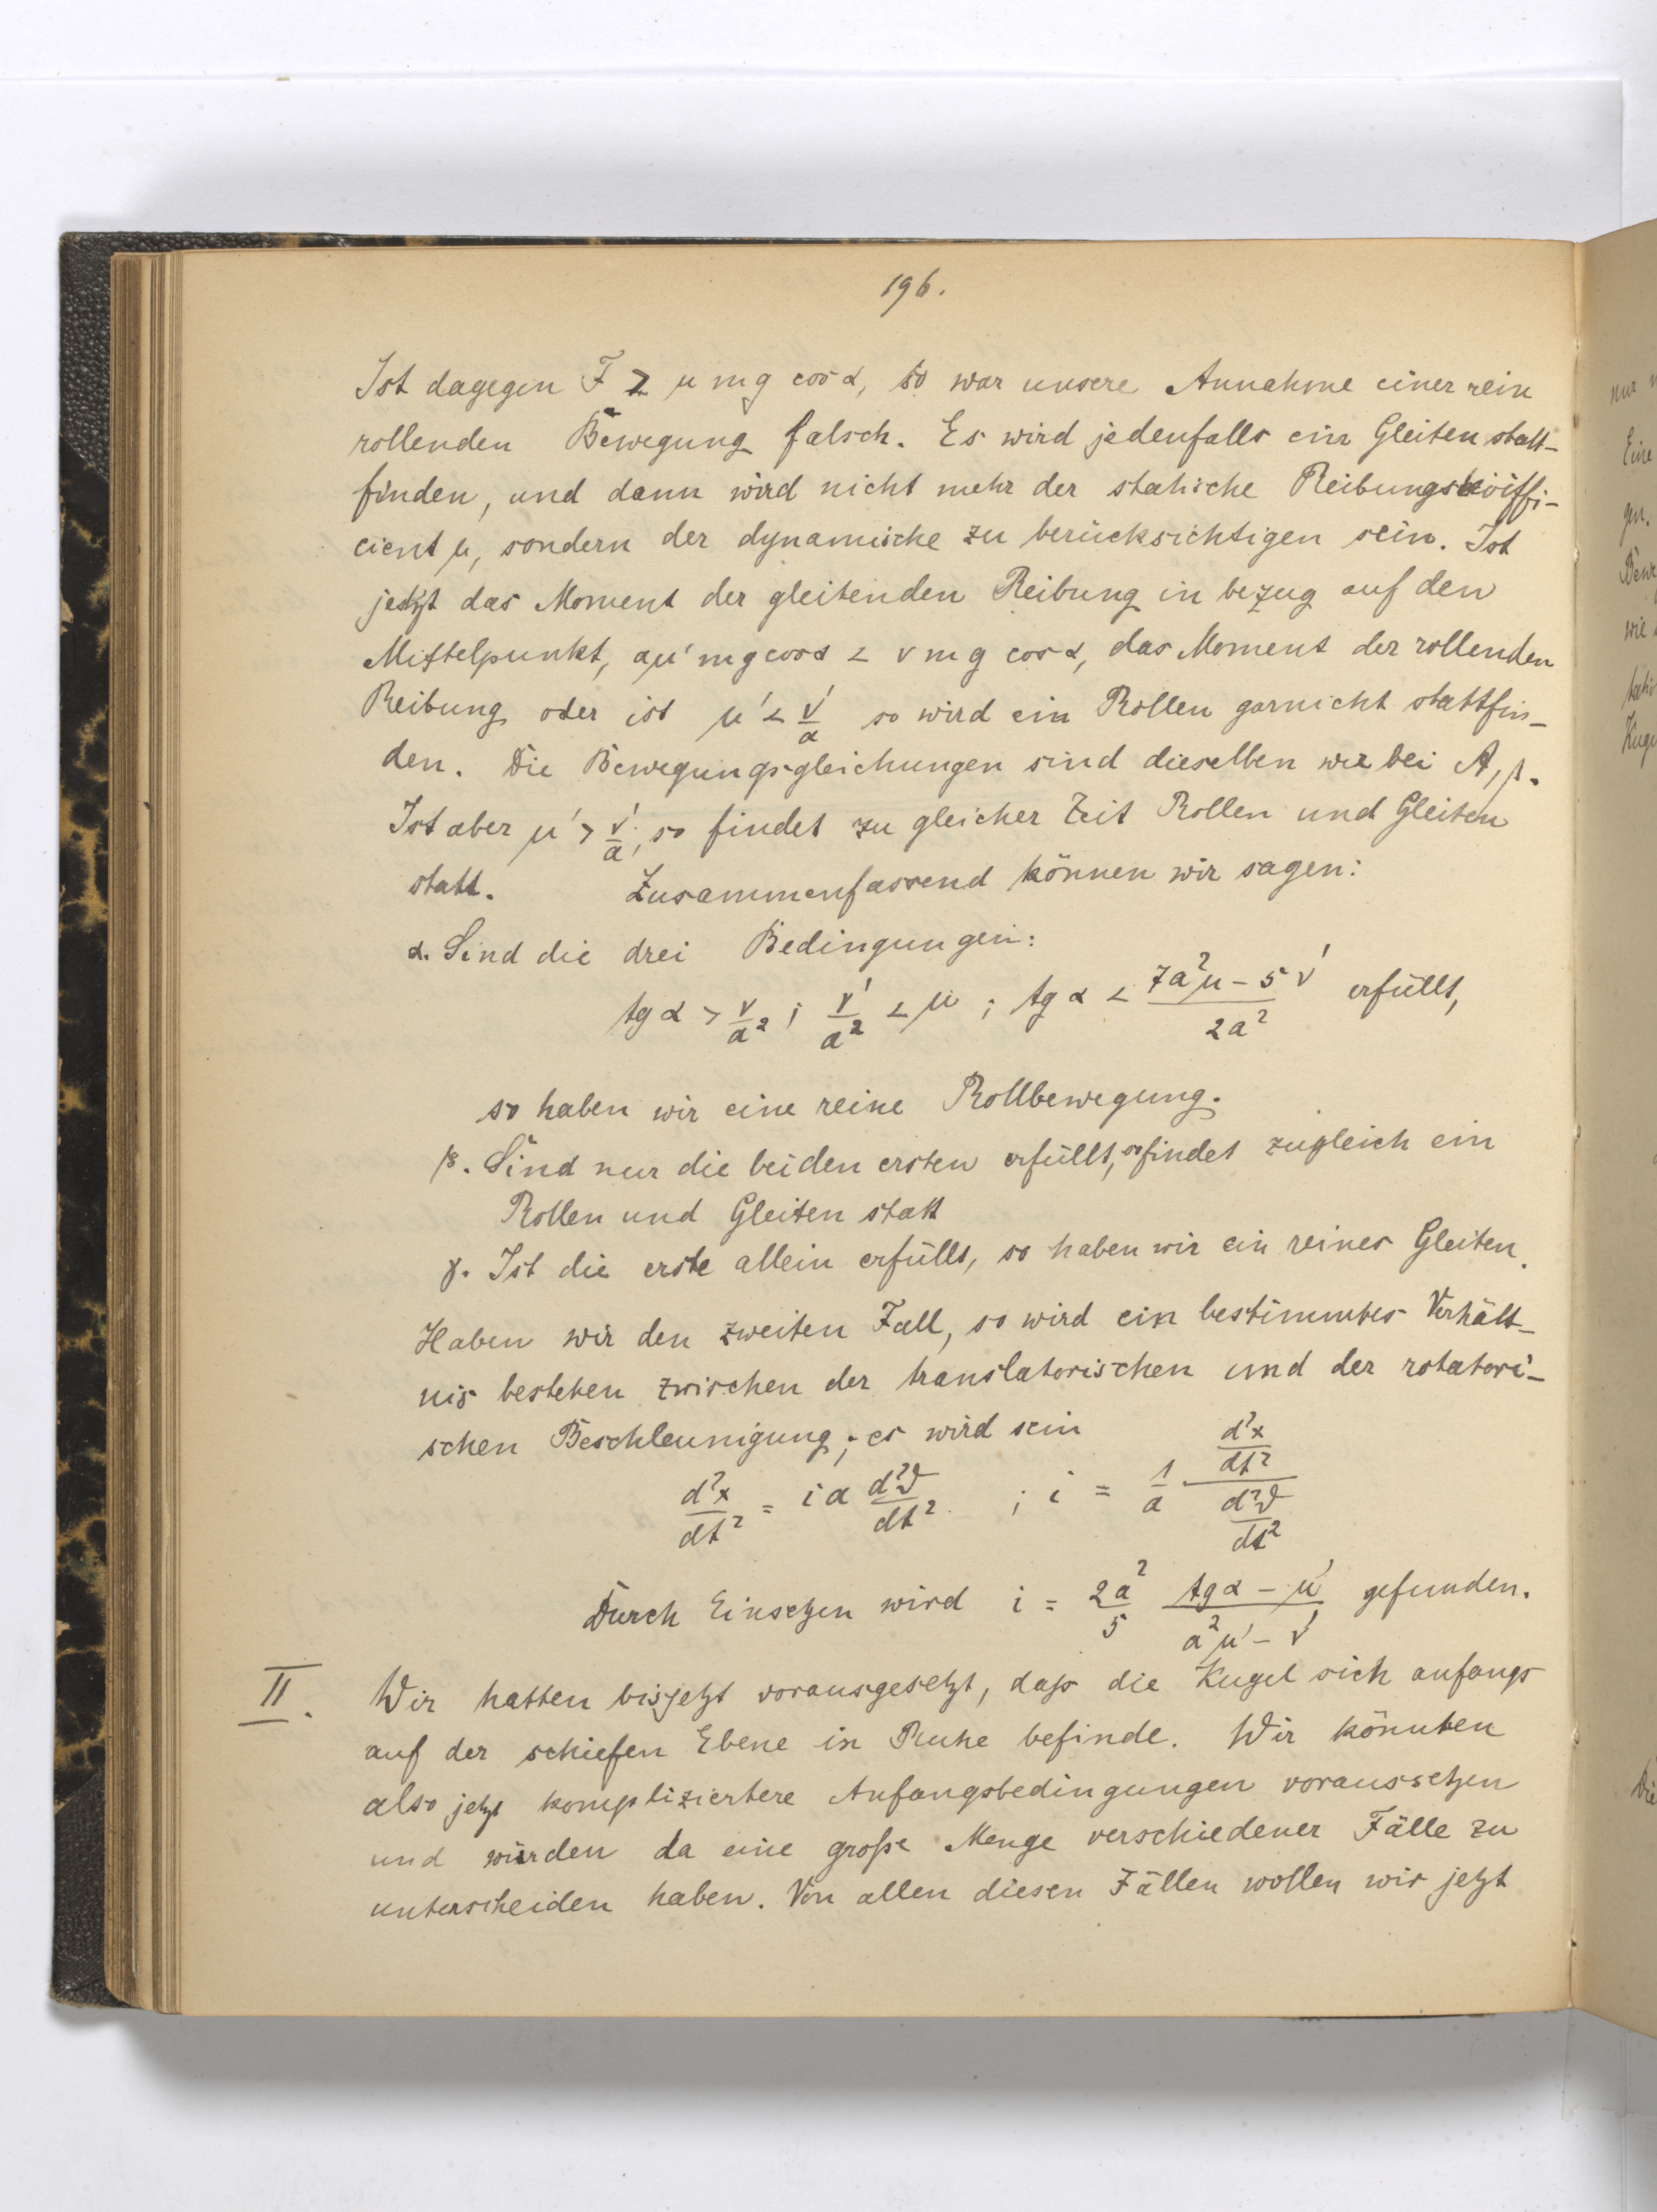 196.
Ist dagegen F > μ m g cos α, so war unsere Annahme einer rein
rollenden Bewegung falsch. Es wird jedenfalls ein Gleiten statt-
finden, und dann wird nicht mehr der statische Reibungskoiffi-
cient μ, sondern der dynamische zu berücksichtigen sein. Ist
jetzt das Moment der gleitenden Reibung in bezug auf den
Mittelpunkt, aμ' m g cos α < ν m g cos α, das Moment der rollenden
Reibung oder ist μ' < ν'/a so wird ein Rollen garnicht stattfin-
den. Die Bewegungsgleichungen sind dieselben wie bei A, β.
Ist aber μ' > ν'/a, so findet zu gleicher Zeit Rollen und Gleiten
statt. Zusammenfassend können wir sagen:
α. Sind die drei Bedingungen:
tg α > ν/a² ; ν'/a² < μ ; tg α < (7a²μ – 5ν')/2a² erfüllt,
so haben wir eine reine Rollbewegung.
β. Sind nur die beiden ersten erfüllt, so findet zugleich ein
Rollen und Gleiten statt
γ. Ist die erste allein erfüllt, so haben wir ein reines Gleiten.
Haben wir den zweiten Fall, so wird ein bestimmtes Verhält-
nis bestehen zwischen der translatorischen und der rotatori-
schen Beschleunigung; es wird sein
d²x/dt² = i a d²ϑ/dt² ; i = 1/a (d²x/dt²)/(d²ϑ/dt²)
Durch Einsetzen wird i = 2a²/5 (tg α – μ')/(a²μ' – ν') gefunden.
II. Wir hatten bisjetzt vorausgesetzt, daß die Kugel sich anfangs
auf der schiefen Ebene in Ruhe befinde. Wir könnten
also jetzt kompliziertere Anfangsbedingungen voraussetzen
und würden da eine große Menge verschiedener Fälle zu
unterscheiden haben. Von allen diesen Fällen wollen wir jetzt
nur
Eine
gen.
wie